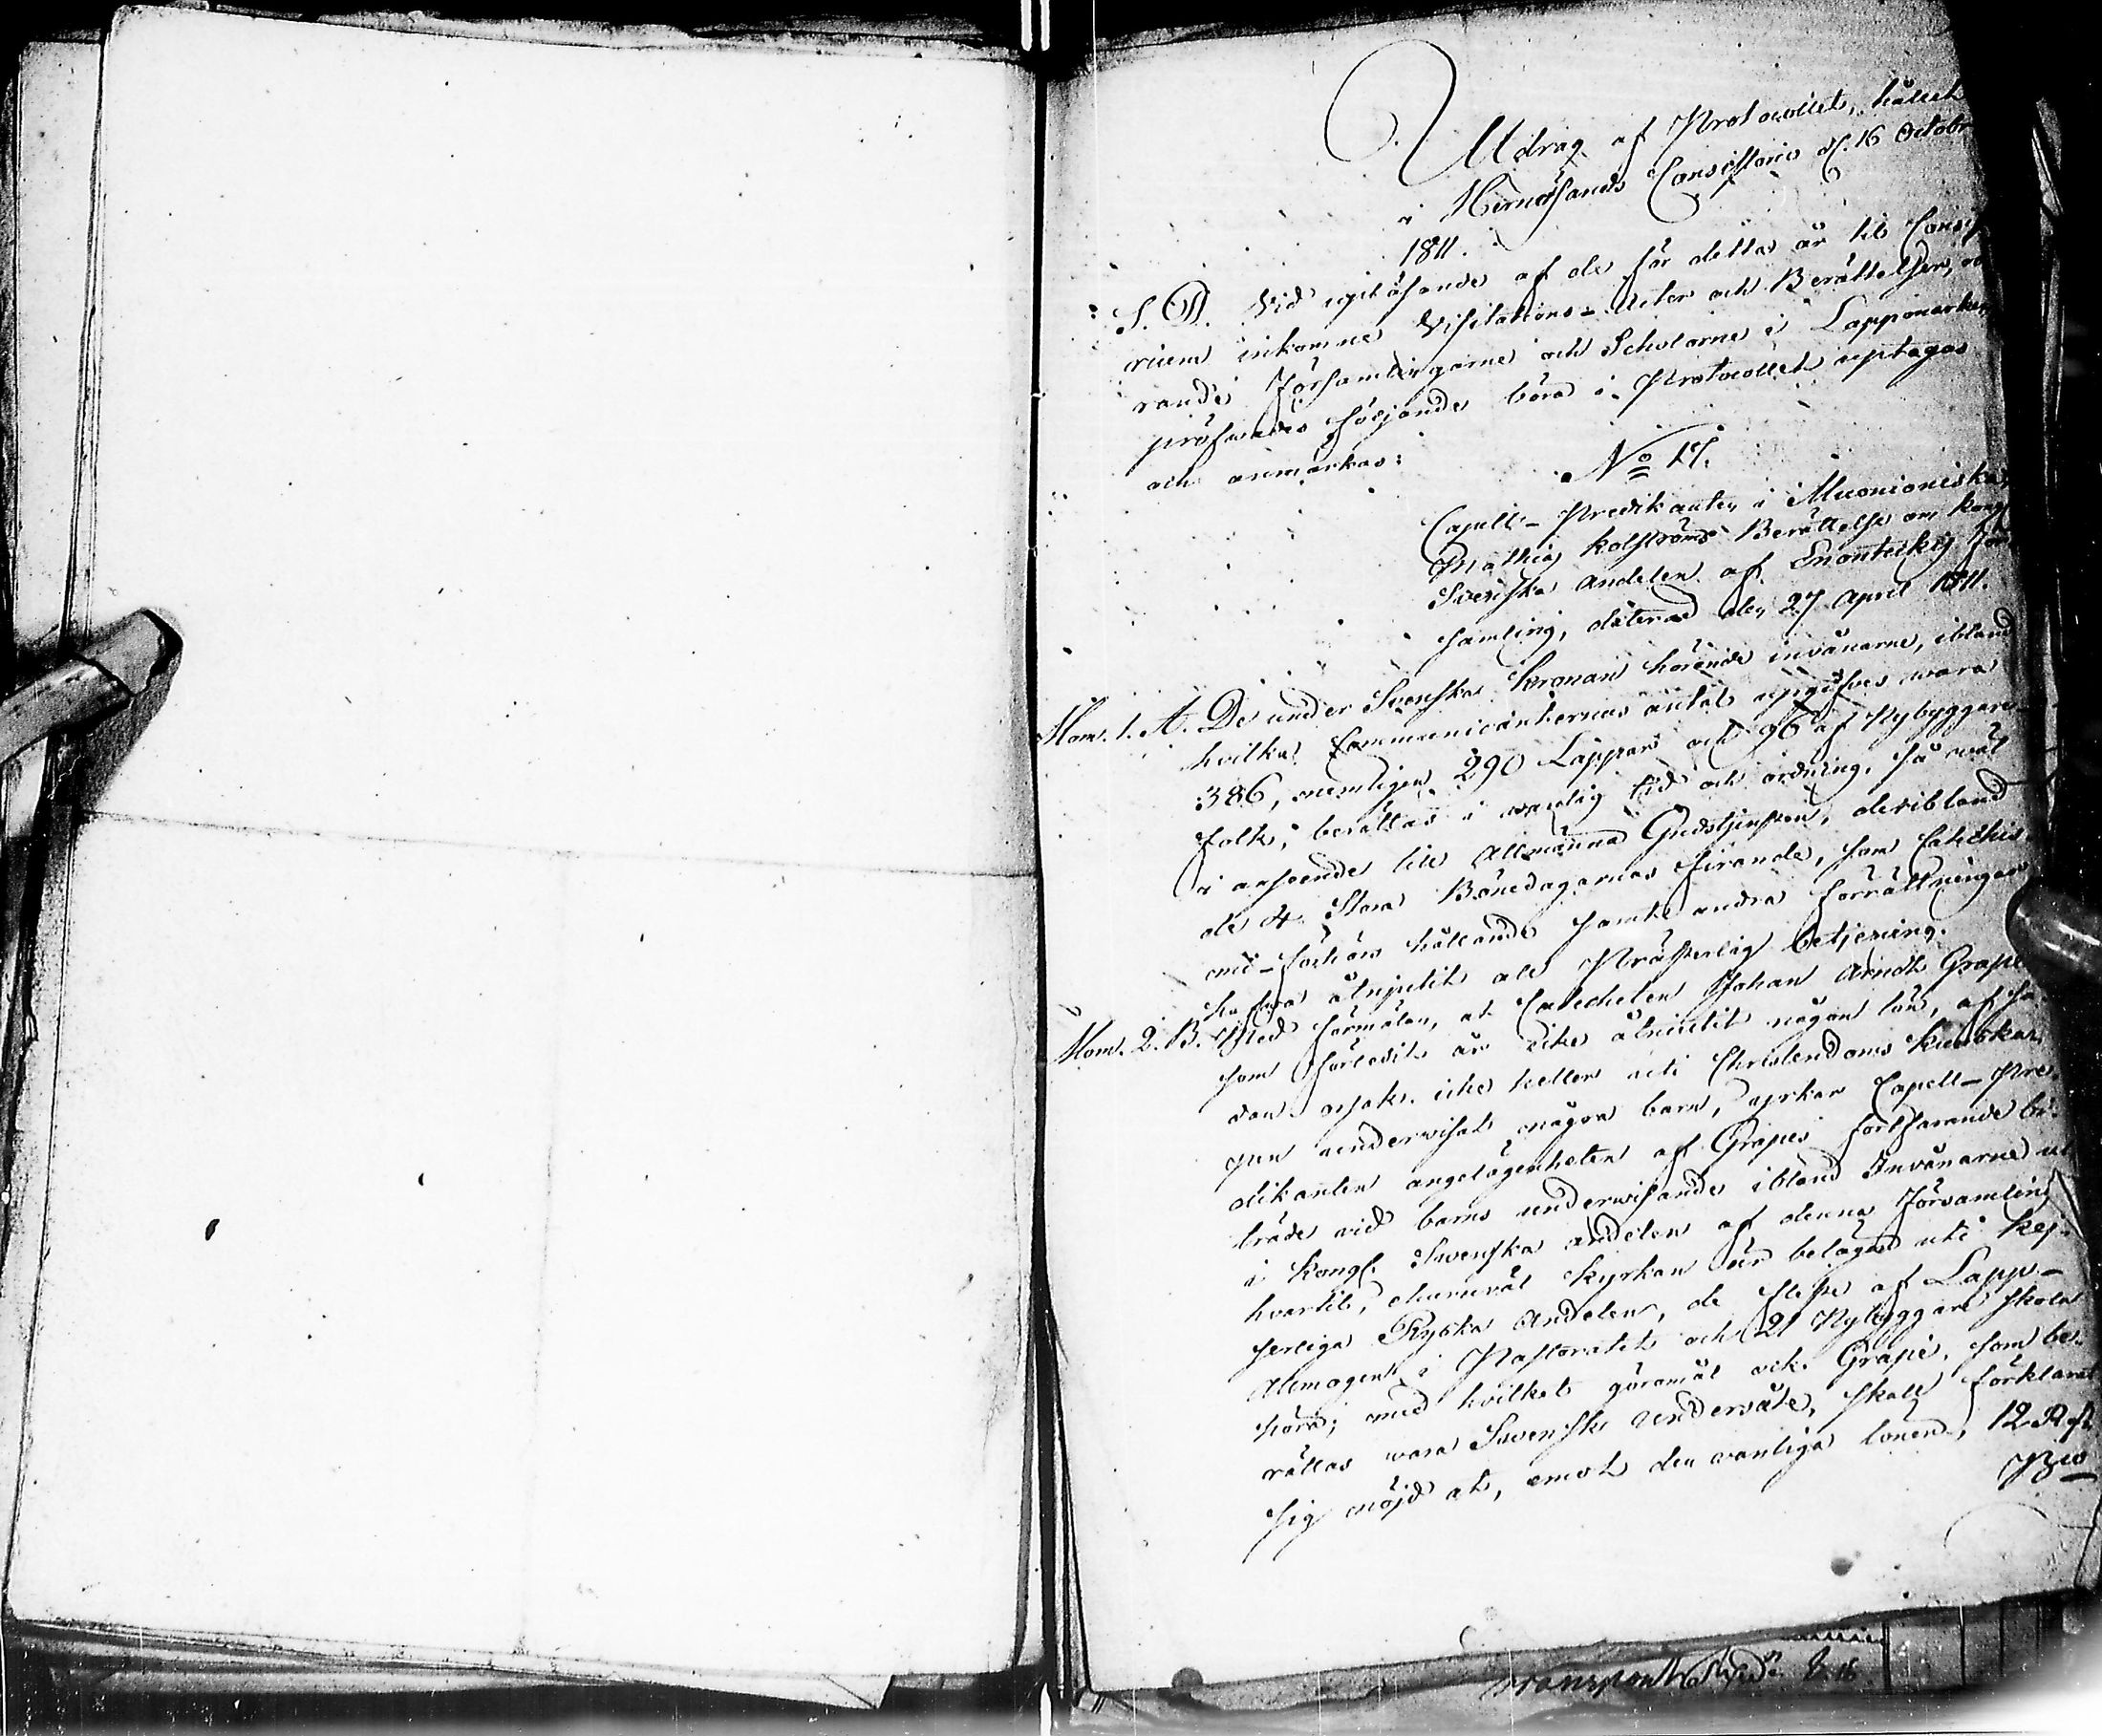 Utdrag af Protocollet, hållet
i Hernösands Consistorio d. 16 Octobr
1811.
S. D. Vid upläsande af de för detta år til Consist
rium inkomne Visitations-Acter och Berättelser, rö
rande Församlingarne och Scholorne i Lappmarken
pröfwades följande böra i Protocollet uptagas
och anmärkas:
No 17.
Capell-Predikanten i Muonioniska,
Mathias Kolströms Berättelse om Kongl.
Svenska Andelen af Enontekis För
samling, daterad den 27 April 1811.
Mom. 1. A. De under Svenska Kronan hörende invånarne, ibland
hvilka Communicanternas antal upgifves wara
386, nemligen 290 Lappar och 96 af Nybyggare
folk, berättas i vanlig tid och ordning, så wäl
i anseende till Allmänna Gudstjensten, deribland
de 4 Stora Bönedagarnas firande, som Catechis
mi-förhörs hållande samt andra förrättningar
hafwa åtnjutit all Prästerlig betjening.
Mom. 2. B. Med förmälan, at Catecheten Johan Arndt Grape
som förledit år icke åtnjutit någon lön, af så
dan orsak icke heller uti Christendoms kunskap
en underwisat några barn, yrkar Capell-Pre
dikanten angelägenheten af Grapes fortfarande bi-
träde vid barns underwisande ibland Invånarne
i Kongl. Swenska andelen af denna Församling
hvartil, churuwäl Kyrkan är belägen uti Kej-
serliga Ryska Andelen, de fleste af Lapp-
Allmogen i Pastoratet och 21 Nybyggare skola
höra; med hvilket göromål ock Grape, som be-
rättas wara Swensk Undersåte, skall förklarat
sig nöjd at, emot den vanliga lönen, 12 Rd
Bco